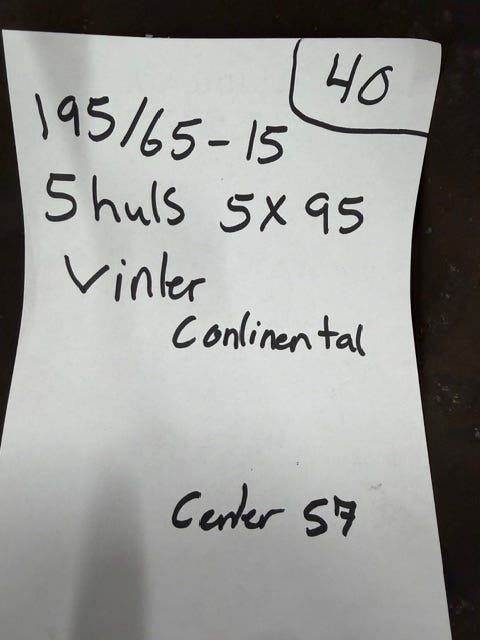 40
195/65-15
5 huls 5x95
Vinter
Continental
Center 57